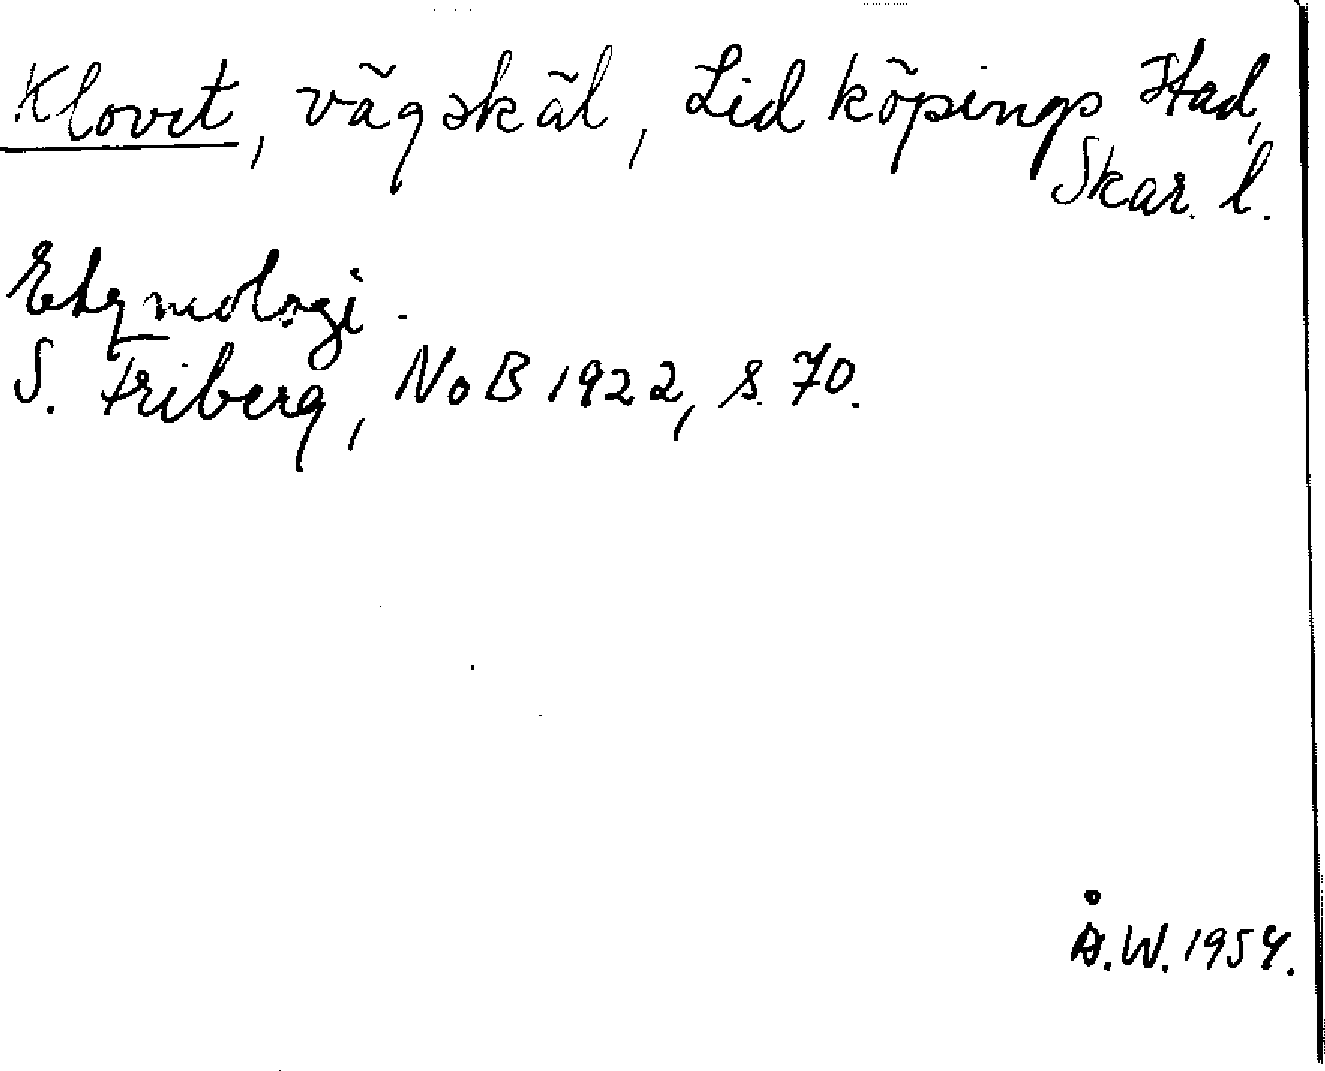 Klovet, vägskäl, Lidköpings stad,
Skar. l.
Etymologi.
S. Friberg, NoB 1922, s. 70.
Å.W. 1954.